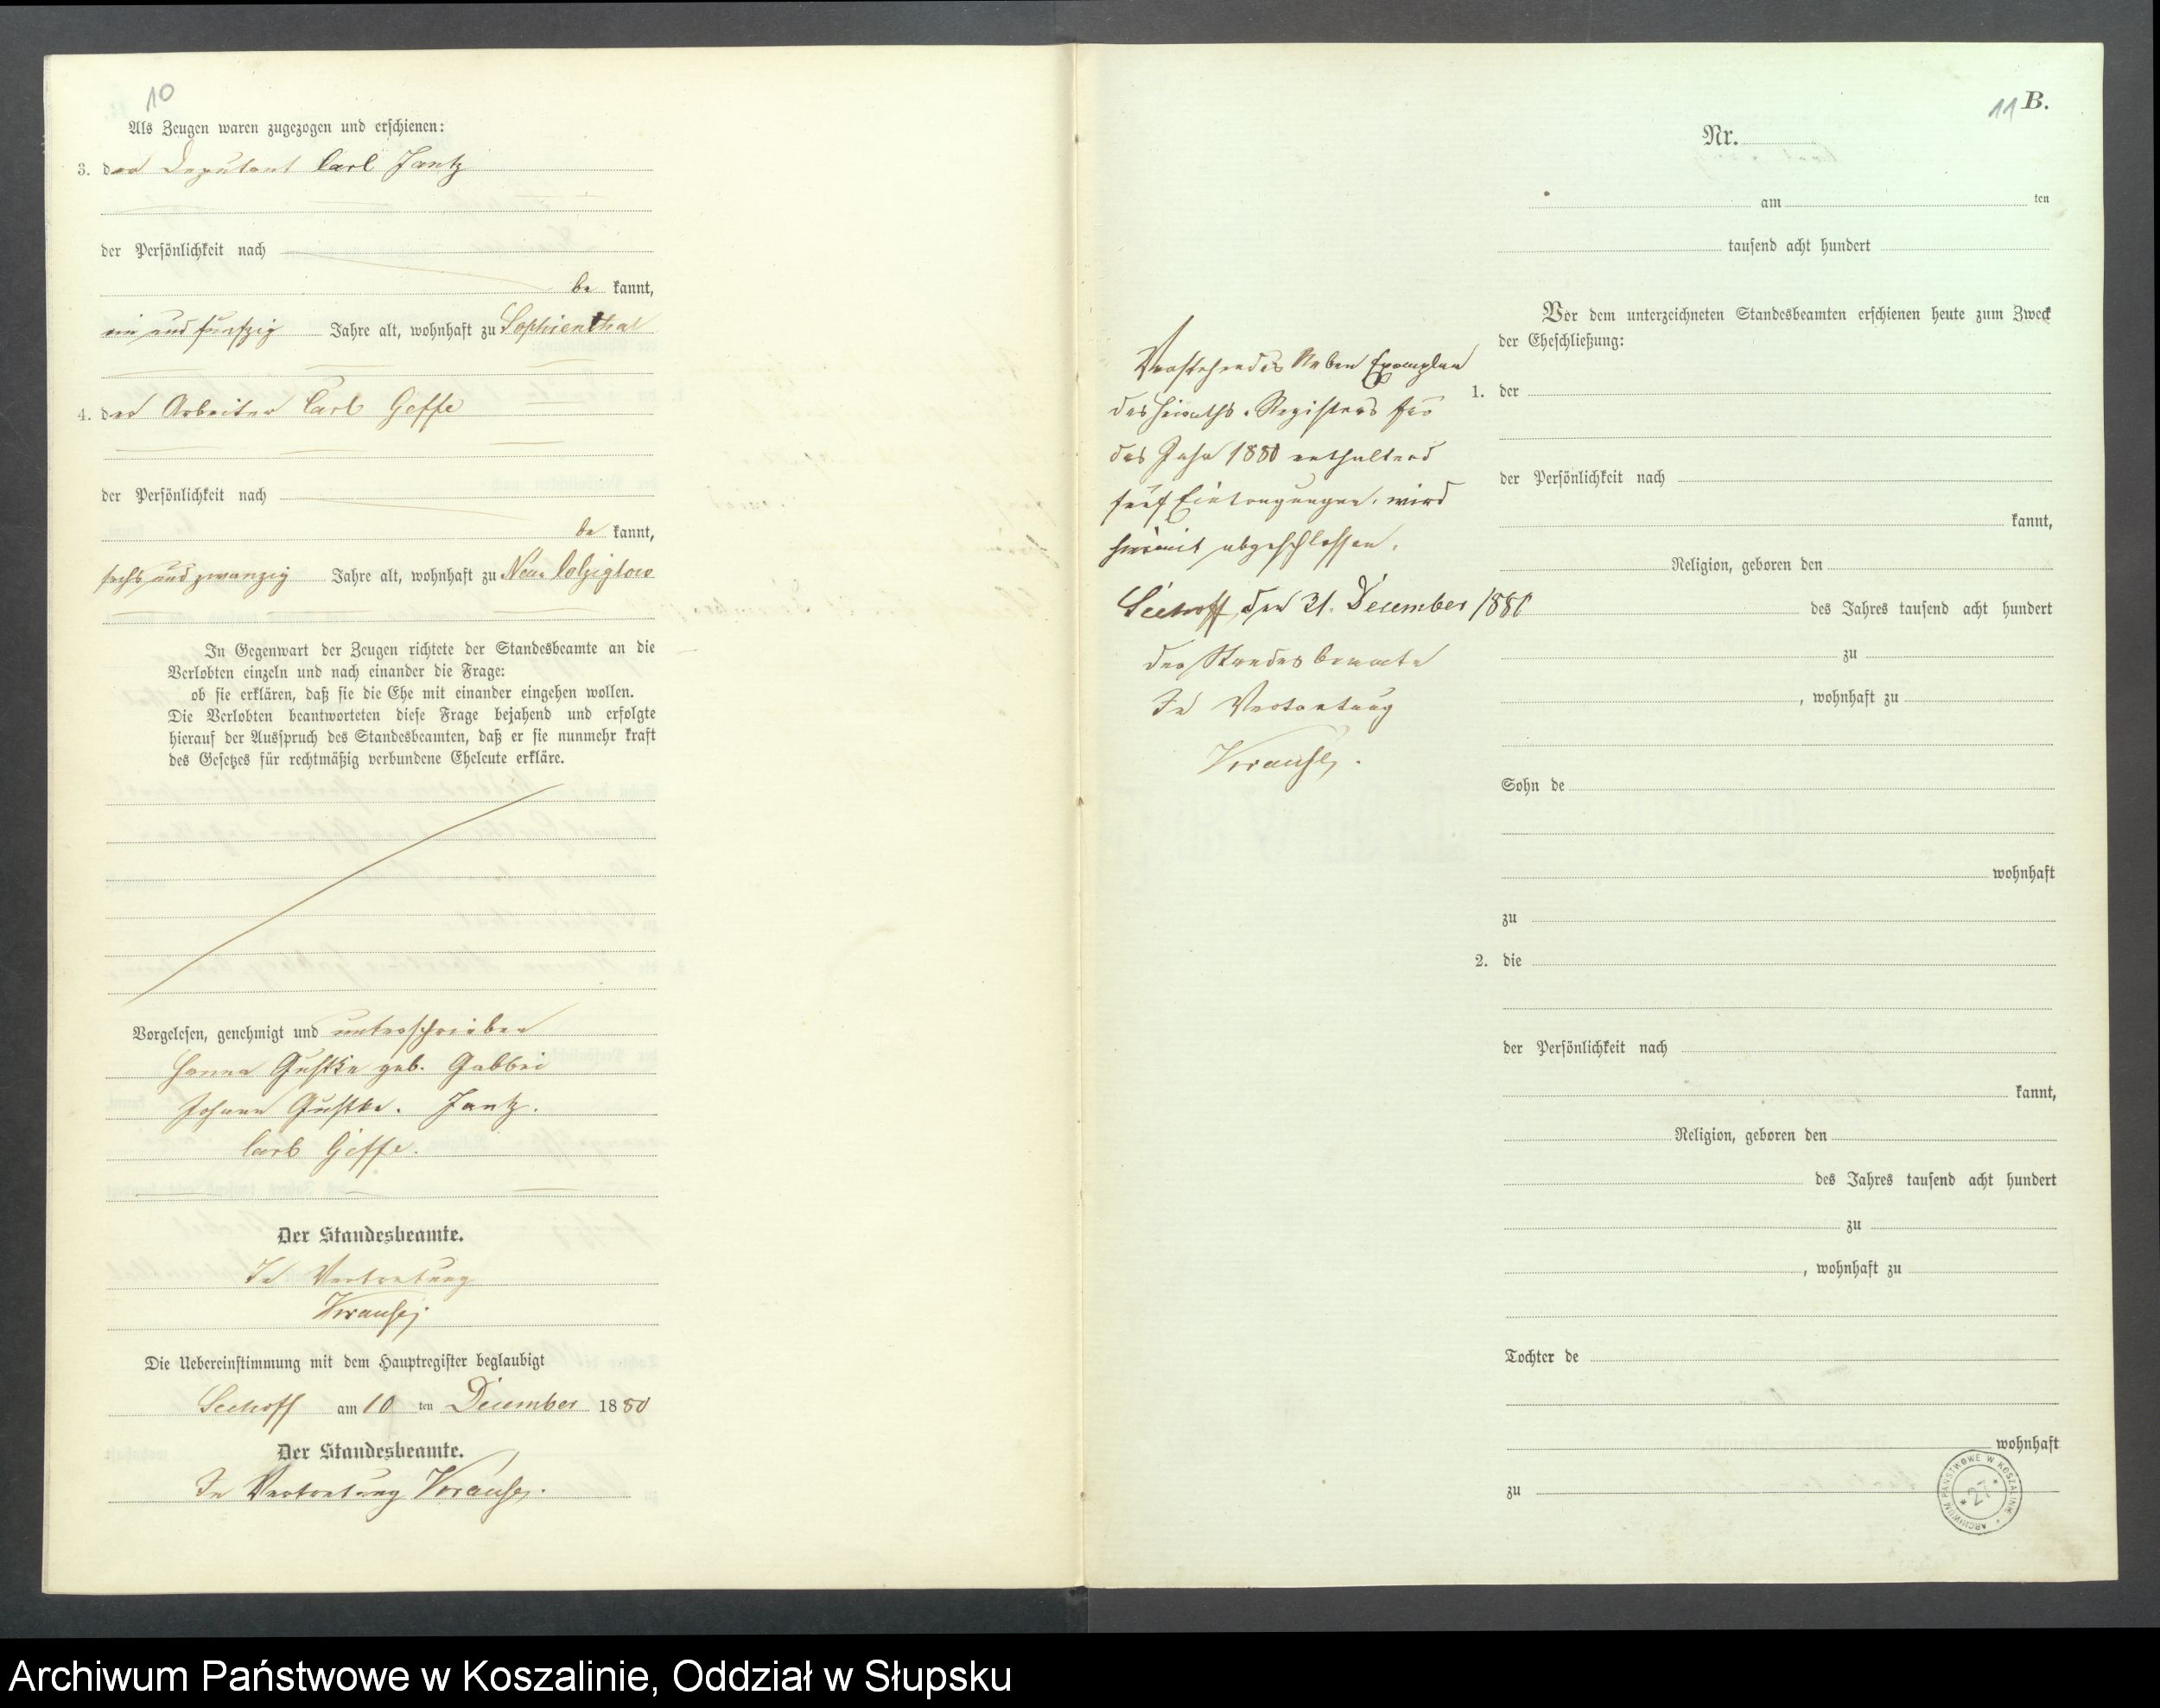 10
Als Zeugen waren zugezogen und erschienen:
3. der Deputant Carl Jantz
der Persönlichkeit nach
be kannt,
ein und funfzig Jahre alt, wohnhaft zu Sophienthal
4. der Arbeiter Carl Geffe
der Persönlichkeit nach
be kannt,
sechs und zwanzig Jahre alt, wohnhaft zu Neu Colziglow
In Gegenwart der Zeugen richtete der Standesbeamte an die
Verlobten einzeln und nach einander die Frage:
ob sie erklären, daß sie die Ehe mit einander eingehen wollen.
Die Verlobten beantworteten diese Frage bejahend und erfolgte
hierauf der Ausspruch des Standesbeamten, daß er sie nunmehr kraft
des Gesetzes für rechtmäßig verbundene Eheleute erkläre.
Vorgelesen, genehmigt und unterschrieben
Hanna Gustke geb. Gabbei
Johann Gustke. Jantz.
Carl Geffe.
Der Standesbeamte.
In Vertretung
Krause
Die Uebereinstimmung mit dem Hauptregister beglaubigt
Seehoff am 10 ten December 1880
Der Standesbeamte.
In Vertretung Krause.
11 B.
Nr.
am ten
tausend acht hundert
Vor dem unterzeichneten Standesbeamten erschienen heute zum Zweck
der Eheschließung:
Vorstehendes Neben Exemplar
des Heiraths-Registers für
das Jahr 1880 enthaltend
fünf Eintragungen, wird
hiermit abgeschlossen.
Seehoff, den 31. December 1880
der Standesbeamte
In Vertretung
Krause.
1. der
der Persönlichkeit nach
kannt,
Religion, geboren den
des Jahres tausend acht hundert
zu
, wohnhaft zu
Sohn de
wohnhaft
zu
2. die
der Persönlichkeit nach
kannt,
Religion, geboren den
des Jahres tausend acht hundert
zu
, wohnhaft zu
Tochter de
wohnhaft
zu
ARCHIWUM PAŃSTWOWE W KOSZALINIE
* 27 *
Archiwum Państwowe w Koszalinie, Oddział w Słupsku